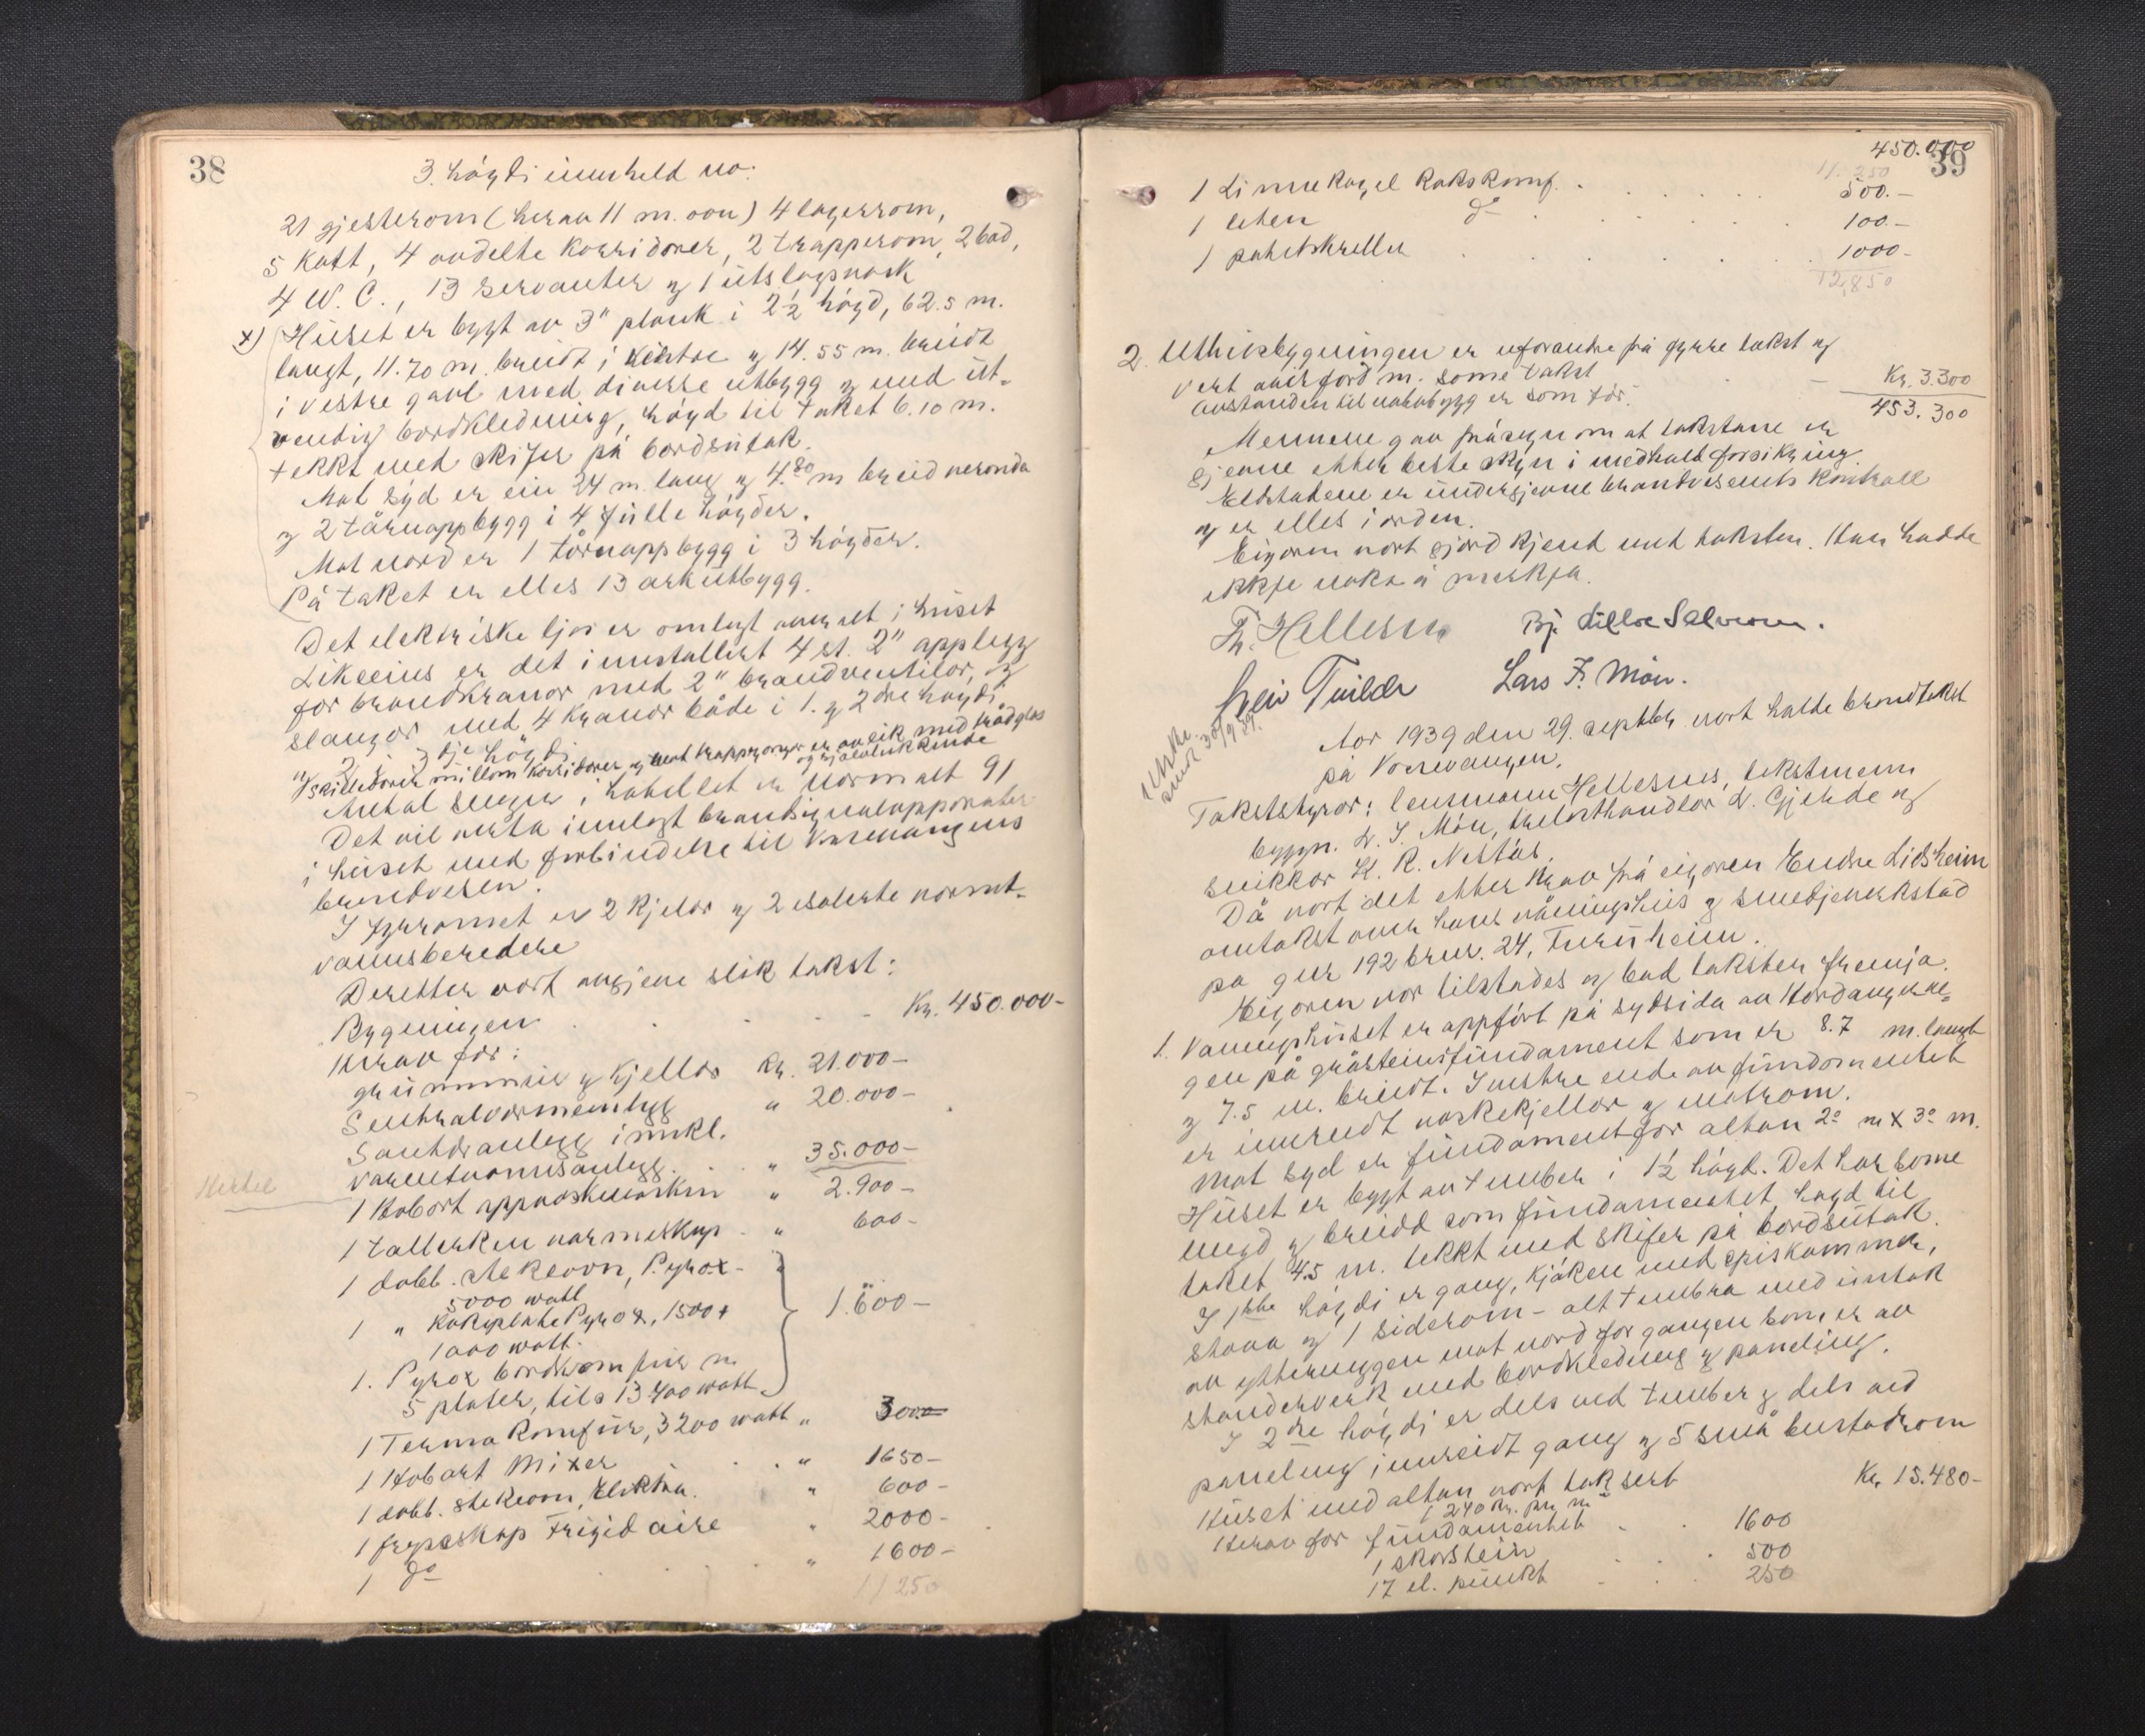 38
3. högdi inneheld no:
21 gjesterom (herav 11 m. ovn) 4 lagerrom,
5 kott, 4 avdelte korridorer, 2 trapperom, 2 bad,
4 W. C., 13 servanter og 1 utslagsvask
x) Huset er bygt av 3" plank i 2½ högd, 62.5 m.
langt, 11.70 m. breidt i östre og 14.55 m. breidt
i vestre gavl med diverse utbygg og med ut-
vendig bordkledning, högd til taket 6.10 m.
tekkt med skifer på bordsutak.
Mot syd er ein 24 m. lang og 4.80 m breid veranda
og 2 tårnoppbygg i 4 fulle högder.
Mot nord er 1 tårnoppbygg i 3 högder.
På taket er elles 13 arkutbygg.
Det elektriske ljos er omlagt overalt i huset
Likeeins er det innstallert 4 st. 2" opplegg
for brandkranor med 2" brandventilor, og
slangor med 4 kranor både i 1. og 2dre högdi
og i 3dje högdi
Skilledorer millom korridorer og mot trappegangar er av eik med trådglas
og sjølvlukkende
Antal senger i hotellet er normalt 91
Det vil verta innlagt brandsignalapparater
i huset med forbindelse til Vossevangens
brandvesen.
I fyrromet er 2 kjelar og 2 isolerte varmt-
vannsberedere
Deretter vart avgjeve slik takst:
Bygningen . . . Kr. 450.000-
Herav for:
grunnmur og kjellar Kr. 21.000-
Sentralvarmeanlegg " 20.000-
Sanitæranlegg innkl.
varmtvannsanlegg . . " 35.000-
1 Hobart oppvaskmaskin " 2.900-
1 tallerken varmeskap . " 600-
1 dobb. stekeovn, Pyrox-
5000 watt
1 " kokeplate Pyrox, 1500 +
1000 watt.
1.600-
1. Pyrox bordkomfur m
5 plater, tils 13400 watt
1 Terma komfur, 3200 watt " 300-
1 Hobart Mixer . . " 1650-
1 dobb. stekeovn, Elektra. " 600-
1 fryseskap Frigidaire " 2000-
1 do . . " 1600-
11250
39
450.000
11.250
1 Linnekogel kokskomf. . . . 500.-
1 liten do . . . 100.-
1 potetskreller . . . 1000-
12,850
2. Uthusbygningen er uforandra frå fyrre takst og
vert anförd m. same takst . - Kr. 3.300
avstanden til nabobygg er som för. 453.300
Mennene gav fråsegn om at takstane er
gjevne etter beste skjyn i medhald forsikring
Eldstadene er undergjevne brandvesenets kontroll
og er elles i orden.
Eigaren vart gjord kjend med taksten. Han hadde
ikkje noko å merkja.
Th. Hellesnes Bj. Lillesalvesen.
Lars F. Møn.
Utskr.
sendt 30/9 39.
Aar 1939 den 29. septbr vart halde brandtakst
på Vossevangen.
Takststyrar: lensmann Hellesnes, takstmenn
byggm. L. F. Møn, trelasthandlar L. Gjerde og
snikkar K. R. Nestås.
Då vart det etter krav frå eigaren Endre Lidsheim
omtakst over hans våningshus og smedjeverkstad
på gnr 192 brnr. 24, Furuheim.
Eigaren var tilstades og bad taksten fremja.
1. Vaningshuset er oppfört på sydsida av Hardangerve-
gen på gråsteinsfundament som er 8.7 m. langt
og 7.5 m. breidt. I vestre ende av fundamentet
er innreidt vaskekjellar og matrom.
Mot syd er fundament for altan 2.0 m x 3.0 m.
Huset er bygt av tember i 1½ högd. Det har same
lengd og breidd som fundamentet, högd til
taket 4.5 m. tekkt med skifer på bordsutak.
I 1ste högdi er gang, kjøken med spiskammer,
stova og 1 siderom - alt tembra med untak
av ytterveggen mot nord for gangen som er av
standerverk med bordkledning og paneling.
I 2dre högdi er dels ved tember og dels ved
paneling innreidt gang og 5 små bustadrom
Huset med altan vart taksert Kr. 15.480-
1 240 kr. pr. m²
Herav for fundamentet . . 1600
1 skorstein . 500
17 el. punkt . . 250